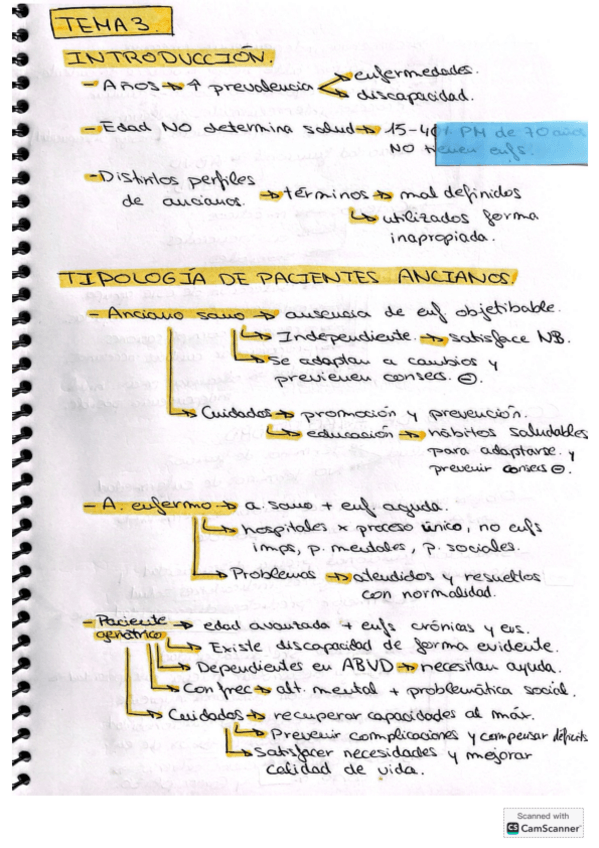 TEMA 3.
INTRODUCCIÓN.
- Años → ↑ prevalencia → enfermedades.
→ discapacidad.
- Edad NO determina salud → 15-40% PM de 70 años
NO tienen enfs.
- Distintos perfiles
de ancianos. → términos → mal definidos
↳ utilizados forma
inapropiada.
TIPOLOGÍA DE PACIENTES ANCIANOS.
- Anciano sano → ausencia de enf objetibable.
↳ Independiente. → satisface NB.
↳ Se adaptan a cambios y
previenen consecs. ⊖.
↳ Cuidados → promoción y prevención.
↳ educación → hábitos saludables
para adaptarse. y
prevenir consecs ⊖.
- A. enfermo → a. sano + enf aguda.
↳ hospitales x proceso único, no enfs
imps, p. mentales, p. sociales.
↳ Problemas → atendidos y resueltos
con normalidad.
- Paciente
geriátrico → edad avanzada + enfs crónicas y evs.
↳ Existe discapacidad de forma evidente.
↳ Dependientes en ABVD → necesitan ayuda.
↳ Con frec → alt. mental + problemática social.
↳ Cuidados → recuperar capacidades al máx.
↳ Prevenir complicaciones y compensar déficits
↳ Satisfacer necesidades y mejorar
calidad de vida.
Scanned with
CS CamScanner